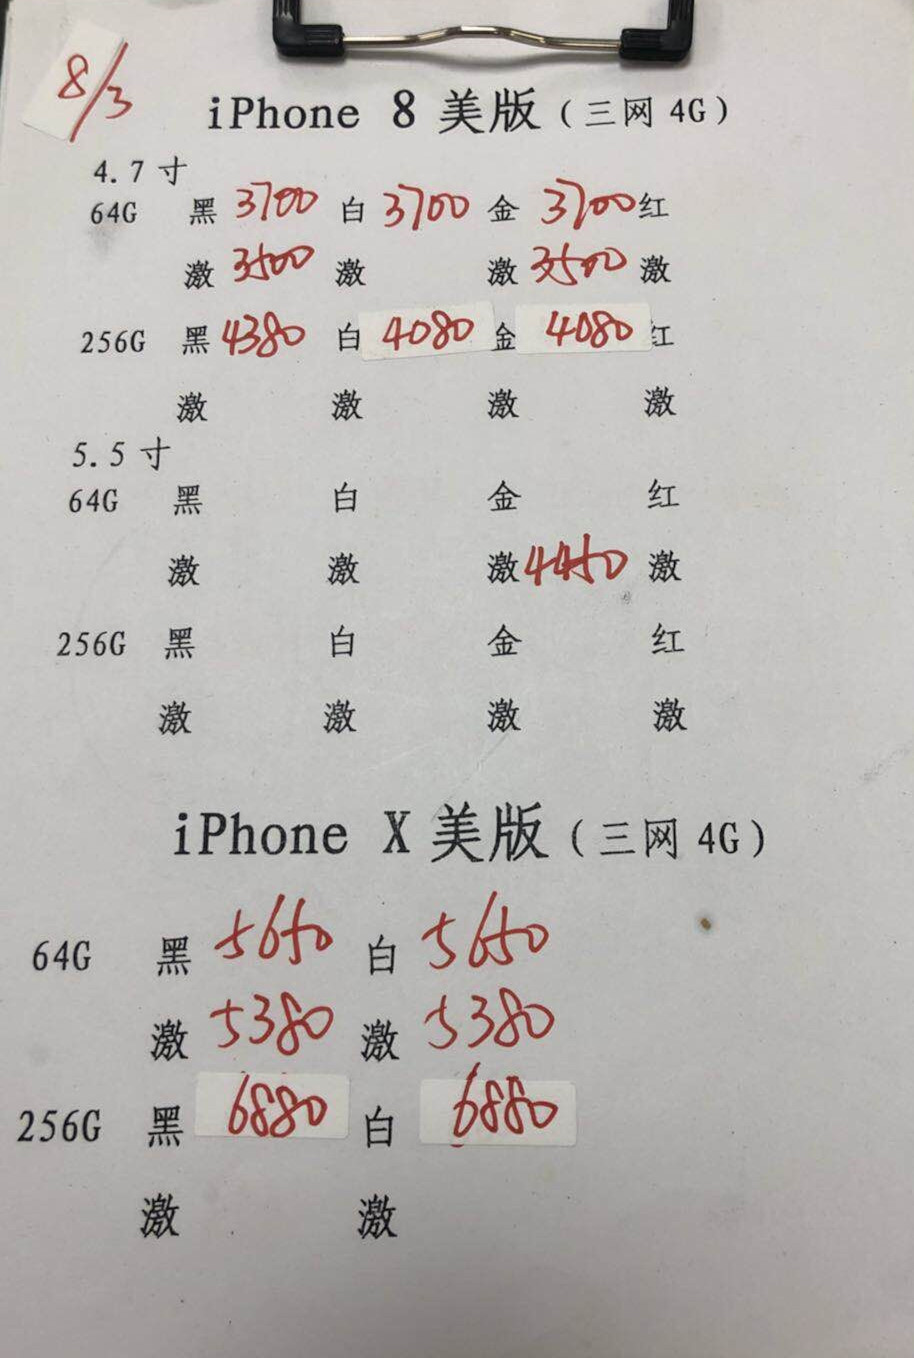 8/3
iPhone 8 美版(三网 4G)
4.7 寸
64G 黑 3700 白 3700 金 3700 红
激 3500 激 激 3500 激
256G 黑 4380 白 4080 金 4080 红
激 激 激 激
5.5 寸
64G 黑 白 金 红
激 激 激 4450 激
256G 黑 白 金 红
激 激 激 激
iPhone X 美版(三网 4G)
64G 黑 5650 白 5650
激 5380 激 5380
256G 黑 6880 白 6880
激 激